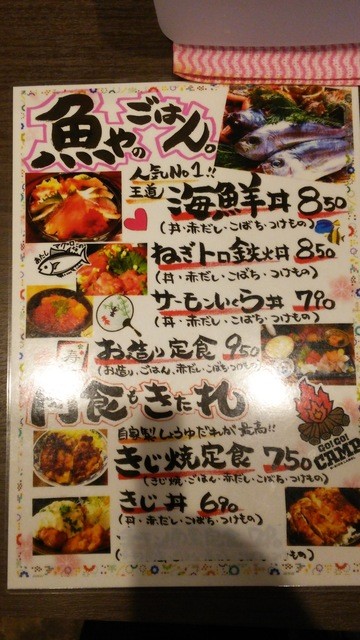 魚やのごはん。
人気No1!!
王道 海鮮丼 850
(丼・赤だし・こばち・つけもの)
ねぎトロ鉄火丼 850
(丼・赤だし・こばち・つけもの)
サーモンいくら丼 790
(丼・赤だし・こばち・つけもの)
お造り定食 950
(お造り・ごはん・赤だし・こばち・つけもの)
肉食もきたれ
自家製しょうゆだれが最高!!
きじ焼定食 750
(きじ焼・ごはん・赤だし・こばち・つけもの)
GO!GO!
CAMP
きじ丼 690
(丼・赤だし・こばち・つけもの)
もの)